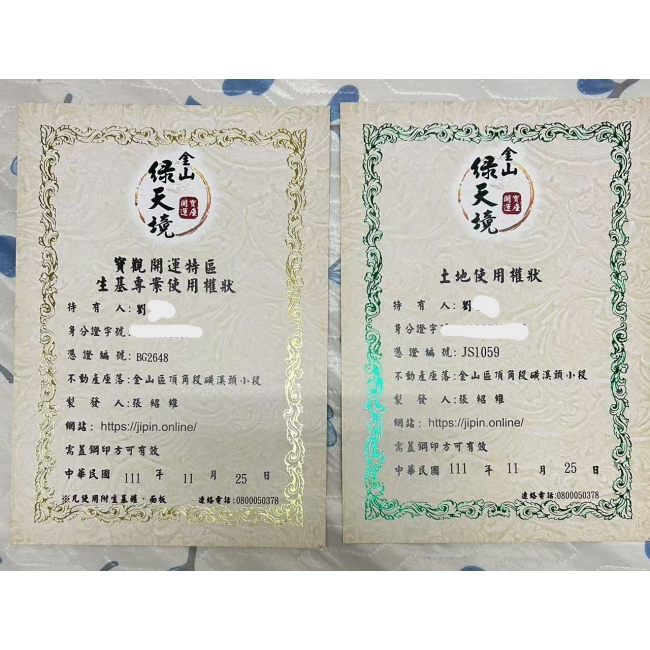 金山
绿天境
寶座開運
寶觀開運特區
生基專案使用權狀
持有人:劉
身分證字號:
憑證編號:BG2648
不動產座落:金山區頂角段磺溪頭小段
製發人:張紹維
網站: https://jipin.online/
需蓋鋼印方可有效
中華民國 111 年 11 月 25 日
※凡使用附生基罐、面板
連絡電話:0800050378
金山
绿天境
寶座開運
土地使用權狀
持有人:劉
身分證字
憑證編號:JS1059
不動產座落:金山區頂角段磺溪頭小段
製發人:張紹維
網站: https://jipin.online/
需蓋鋼印方可有效
中華民國 111 年 11 月 25 日
連絡電話:0800050378